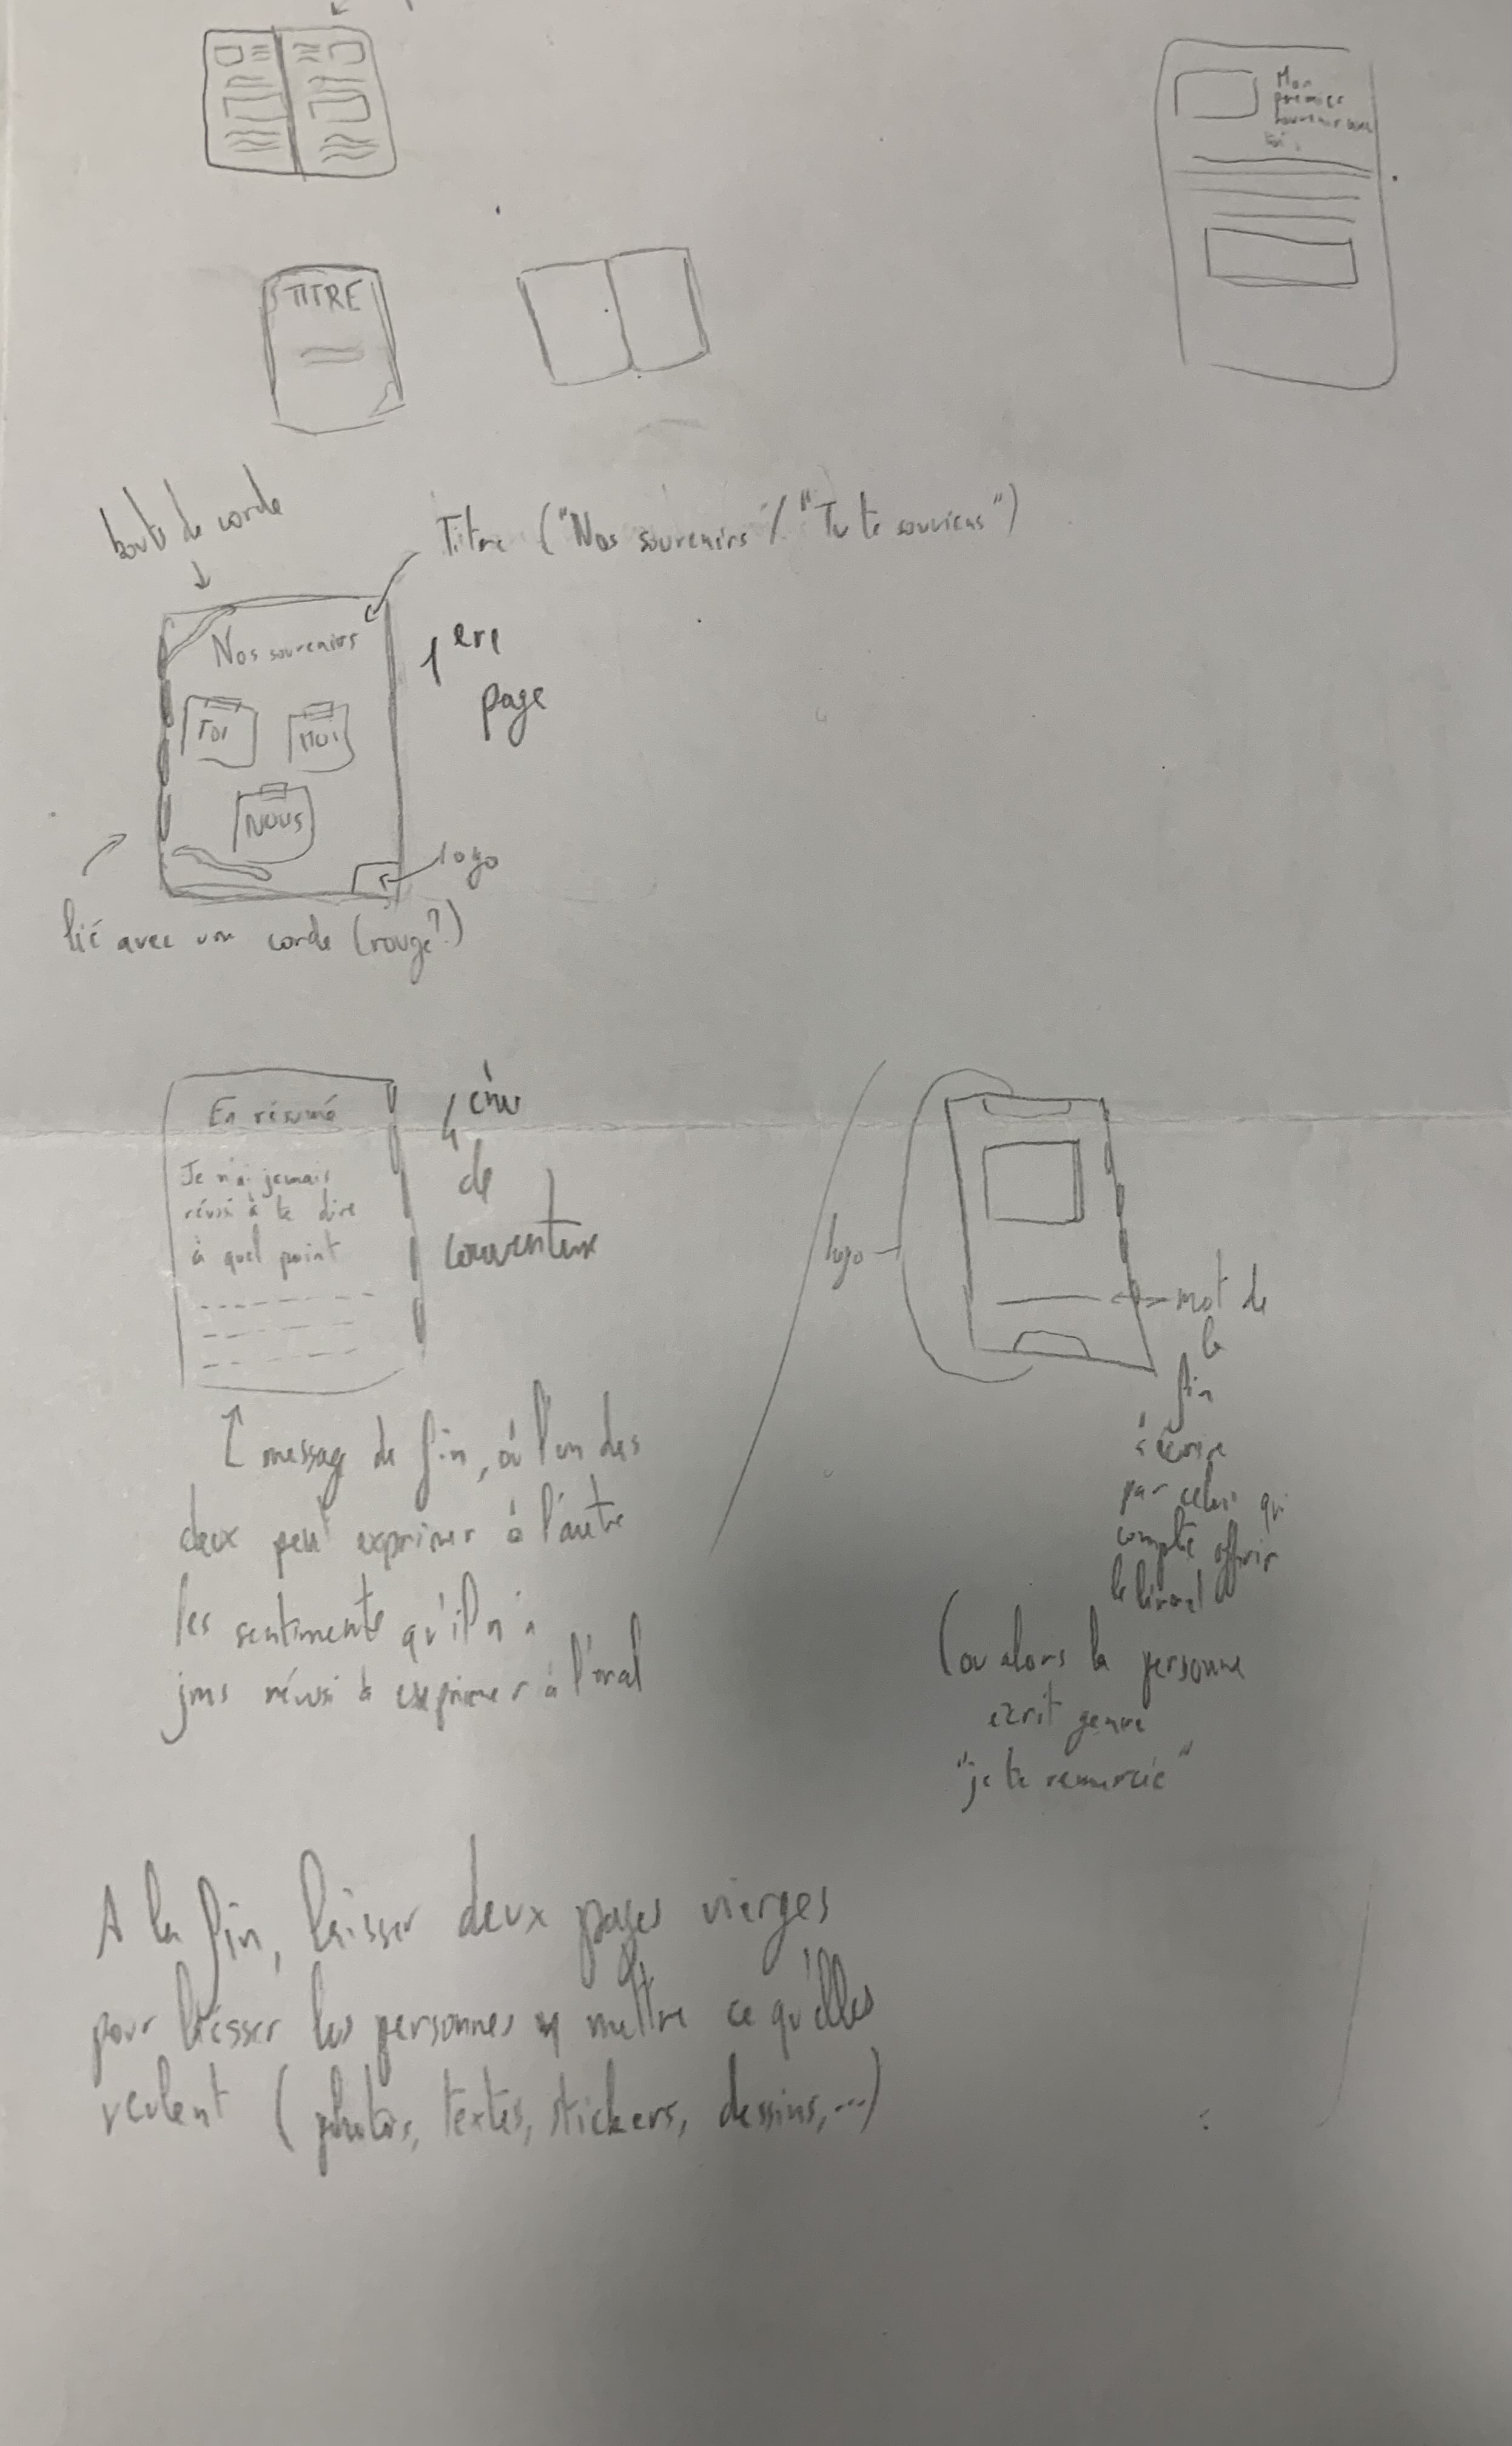 Mon
premier
souvenir avec
toi :
TITRE
bouts de corde
Titre ("Nos souvenirs" / "Tu te souviens")
Nos souvenirs
1ere
page
TOI
MOI
NOUS
logo
lié avec une corde (rouge?)
En résumé
Je n'ai jamais
réussi à te dire
à quel point
4ème
de
couverture
logo
mot de
la
fin
à écrire
par celui qui
compte offrir
le livret
message de fin, où l'un des
deux peut exprimer à l'autre
les sentiments qu'il n'a
jms réussi à exprimer à l'oral
(ou alors la personne
écrit genre
"je te remercie"
A la fin, laisser deux pages vierges
pour laisser les personnes y mettre ce qu'elles
veulent (photos, textes, stickers, dessins,...)